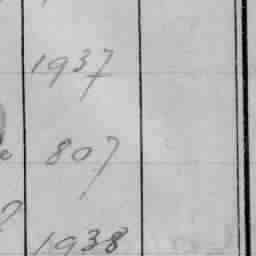 1937
807
1938